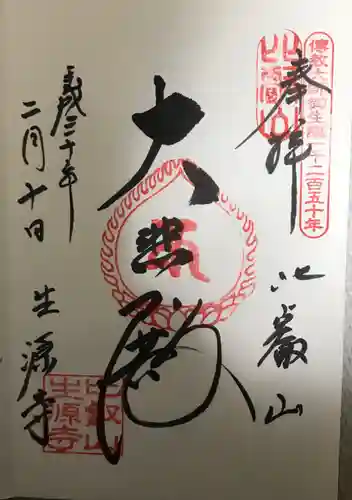 傳教大師御生誕千二百五十年
奉拝
比叡山
大悲殿
平成三十年
二月十日
生源寺
比叡山
生源寺